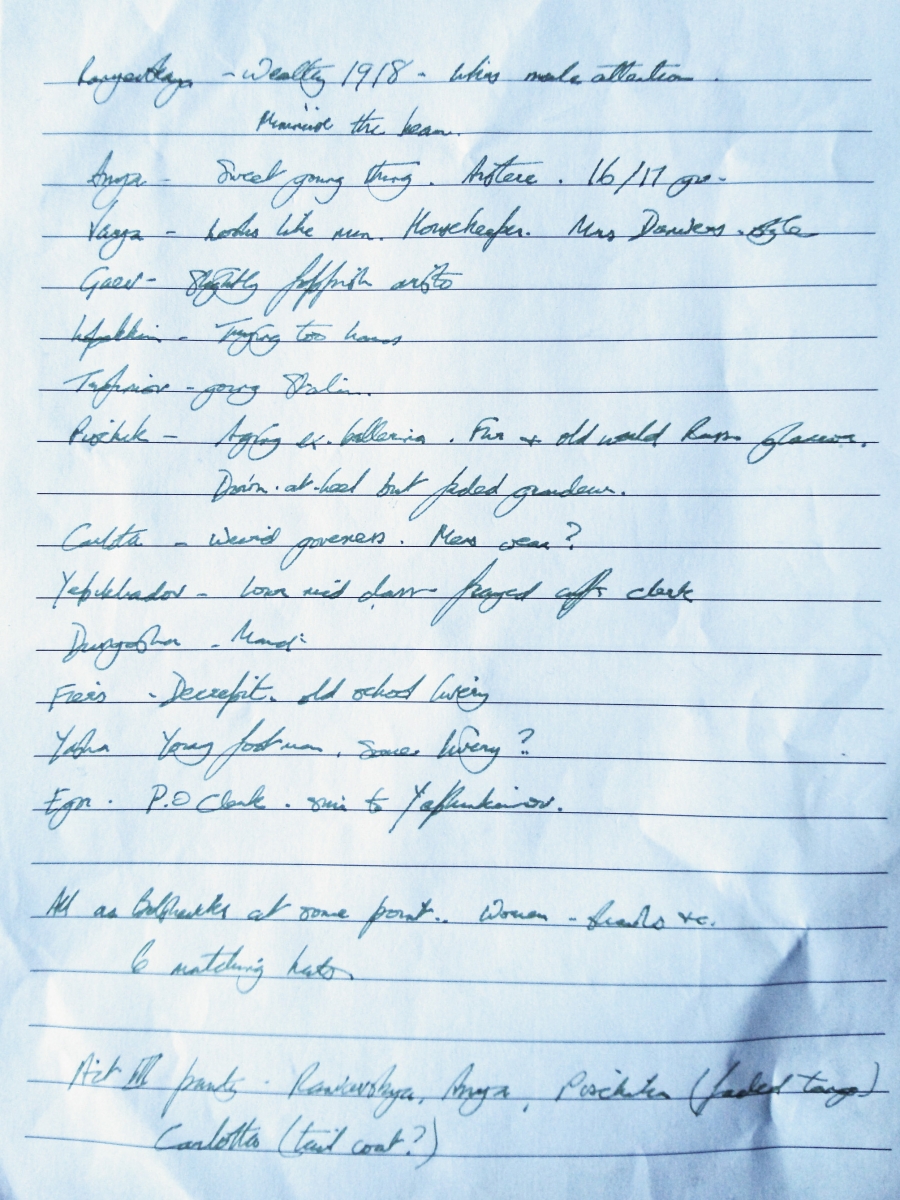 Ranyevskaya - Wealthy 1918 - likes male attention.
Minimise the
Anya - Sweet young thing. Austere. 16/17 yo.
Varya - Looks like nun. Housekeeper. Mrs Danvers style
Gaev - Slightly foppish aristo
Lopakhin - Trying too hard
Trofimov - young Stalin.
Pischik - Aging ex. ballerina. Fur + old world Russ glamour.
Down-at-heel but faded grandeur.
Carlotta - Weird governess. Mens wear?
Yepikhodov - Low mid class frayed cuffs clerk
Dunyasha - Maid.
Fiers - Decrepit. old school livery
Yasha Young footman. Same livery?
P.O Clerk. sim to
All as Bolsheviks at some point.. Women - &c.
6 matching hats
Act III party - Ranievskaya, Anya, (faded
Carlotta (tail coat?)